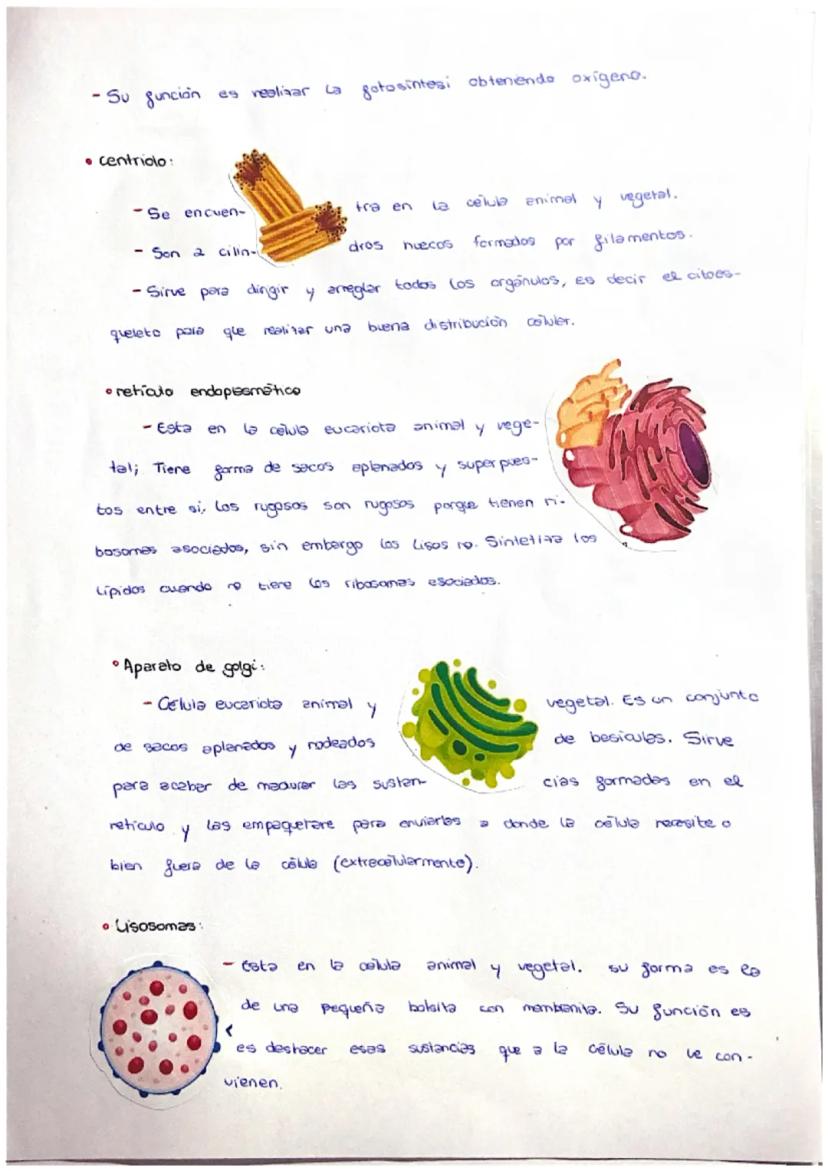 - Su función es realizar la fotosíntesi obteniendo oxígeno.
• Centriolo:
- Se encuentra en la célula animal y vegetal.
- Son 2 cilindros huecos formados por filamentos.
- Sirve para dirigir y arreglar todos los orgánulos, es decir el citoes-
queleto para que realizar una buena distribución celular.
• retículo endoplasmático
- Esta en la célula eucariota animal y vege-
tal; Tiene forma de sacos aplanados y superpues-
tos entre si, los rugosos son rugosos porque tienen ri-
bosomas asociados, sin embargo los lisos no. Sintetiza los
lípidos cuando no tiene los ribosomas asociados.
• Aparato de golgi:
- Célula eucariota animal y vegetal. Es un conjunto
de sacos aplanados y rodeados de besículas. Sirve
para acabar de madurar las sustancias formadas en el
retículo y las empaquetare para enviarlas a donde la célula necesite o
bien fuera de la célula (extracelularmente).
• Lisosomas:
- Esta en la célula animal y vegetal. su forma es la
de una pequeña bolsita con membanita. Su función es
es deshacer esas sustancias que a la célula no le con-
vienen.